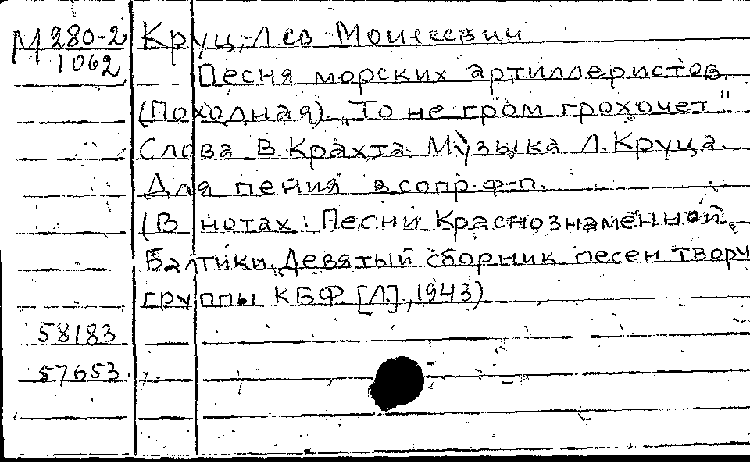 М 280-2 Круц, Лев Моисеевич
1062
Песня морских артиллеристов.
(Походная) „То не гром грохочет"
Слова В. Крахта. Музыка Л. Круца.
Для пения в сопр. ф-п.
(В нотах: Песни Краснознаменной
Балтики. Девятый сборник песен творч
группы КБФ [Л], 1943)
58183
57653